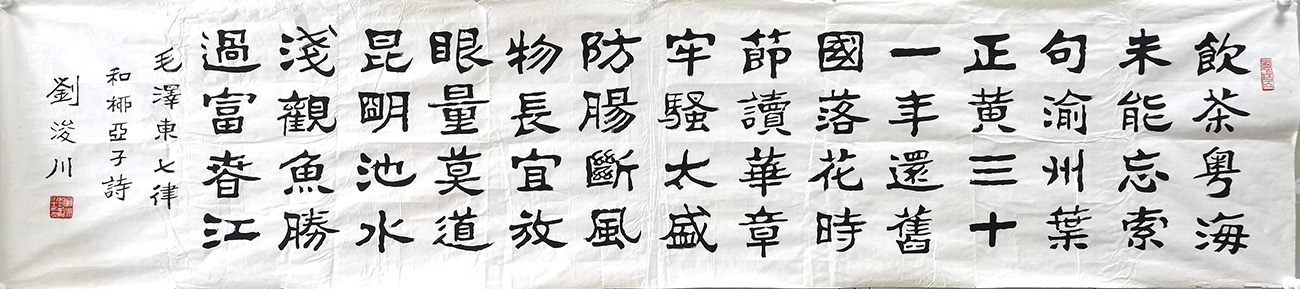 飲茶粵海
未能忘索
句渝州葉
正黃三十
一年還舊
國落花時
節讀華章
牢騷太盛
防腸斷風
物長宜放
眼量莫道
昆明池水
淺觀魚勝
過富春江
毛澤東七律
和柳亞子詩
劉浚川